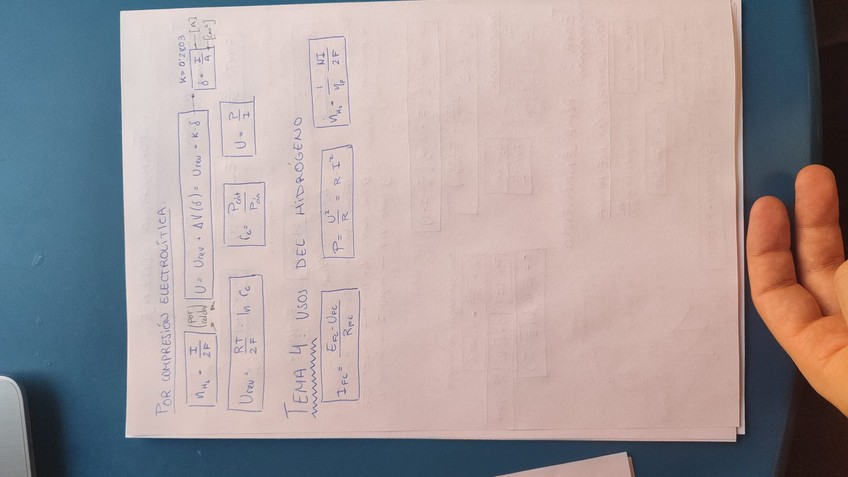 POR COMPRESIÓN ELECTROLÍTICA
ṅH₂ = I / 2F (por celda) U = Urev + ΔV(δ) = Urev + K δ → K = 0'2803 δ = I / A ← [A] ← [cm²]
Urev = RT / 2F · ln rc rc = Pcat / Pan U = P / I
TEMA 4: USOS DEL HIDRÓGENO
IFC = EFC - UFC / RFC P = U² / R = R · I² ṅH₂ = 1 / ηF NI / 2F